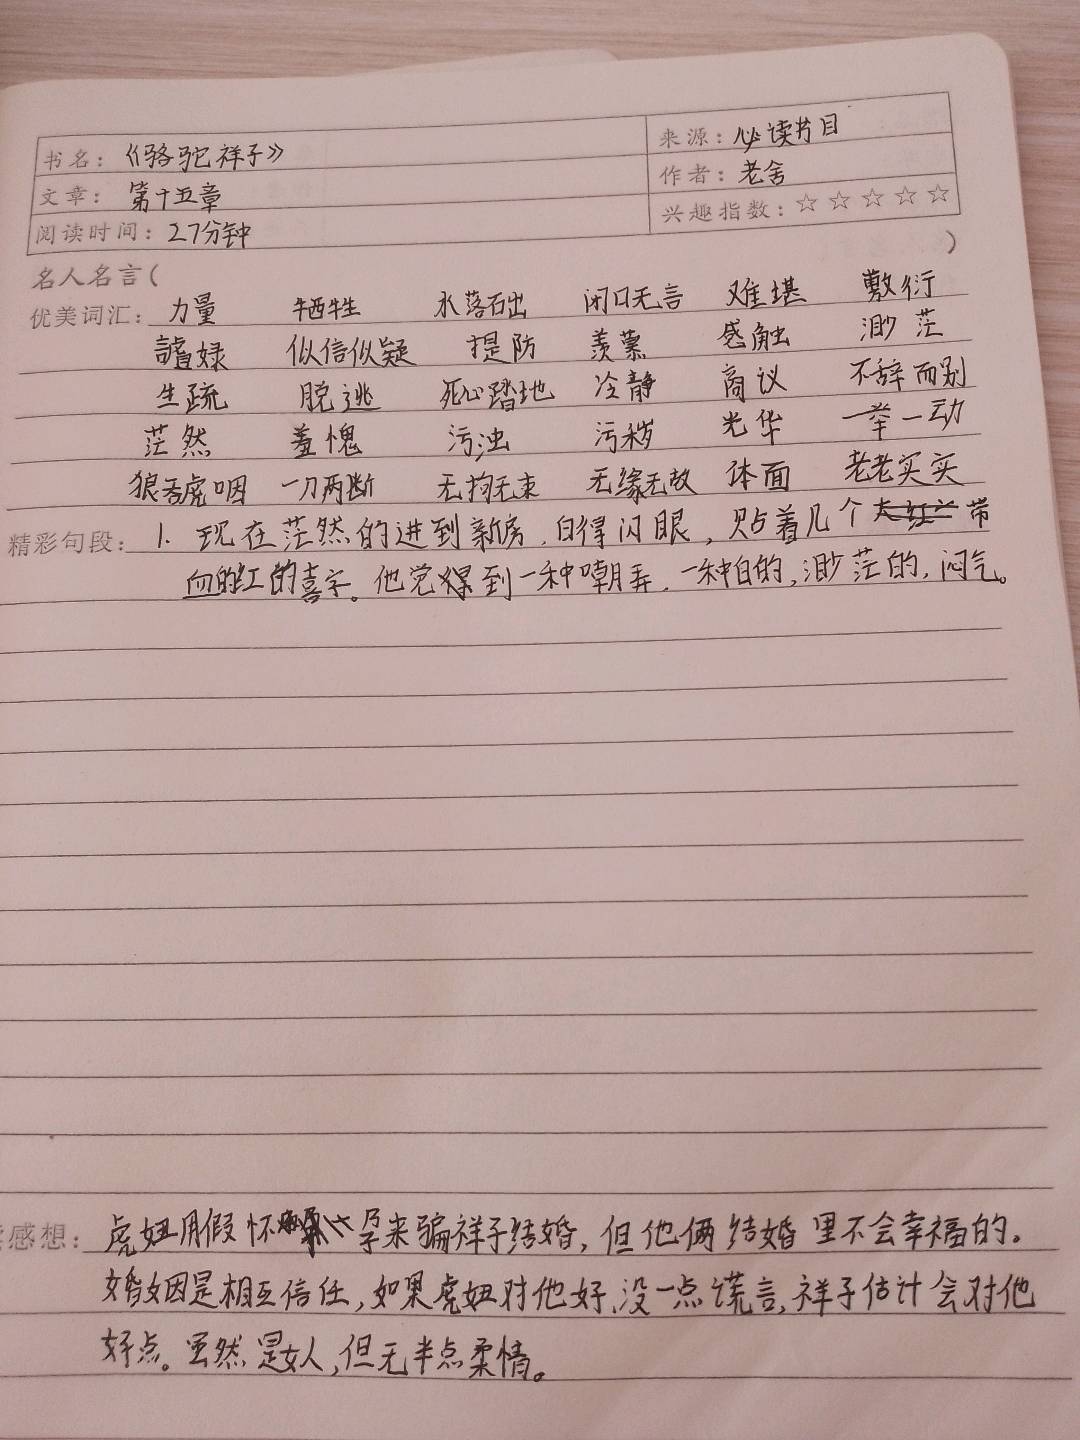 书名：《骆驼祥子》 来源：必读书目
文章：第十五章 作者：老舍
阅读时间：27分钟 兴趣指数：☆☆☆☆☆
名人名言（ ）
优美词汇：力量 牺牲 水落石出 闭口无言 难堪 敷衍
似信似疑 提防 羡慕 感触 渺茫
生疏 脱逃 死心踏地 冷静 商议 不辞而别
茫然 羞愧 污浊 污秽 光华 一举一动
狼吞虎咽 一刀两断 无拘无束 无缘无故 体面 老老实实
精彩句段：1. 现在茫然的进到新房，白得闪眼，贴着几个带
血的红的喜字。他觉得到一种嘲弄，一种白的，渺茫的，闷气。
感想：虎妞用假怀孕来骗祥子结婚，但他俩结婚里不会幸福的。
婚姻因是相互信任，如果虎妞对他好，没一点谎言，祥子估计会对他
好点。虽然是女人，但无半点柔情。